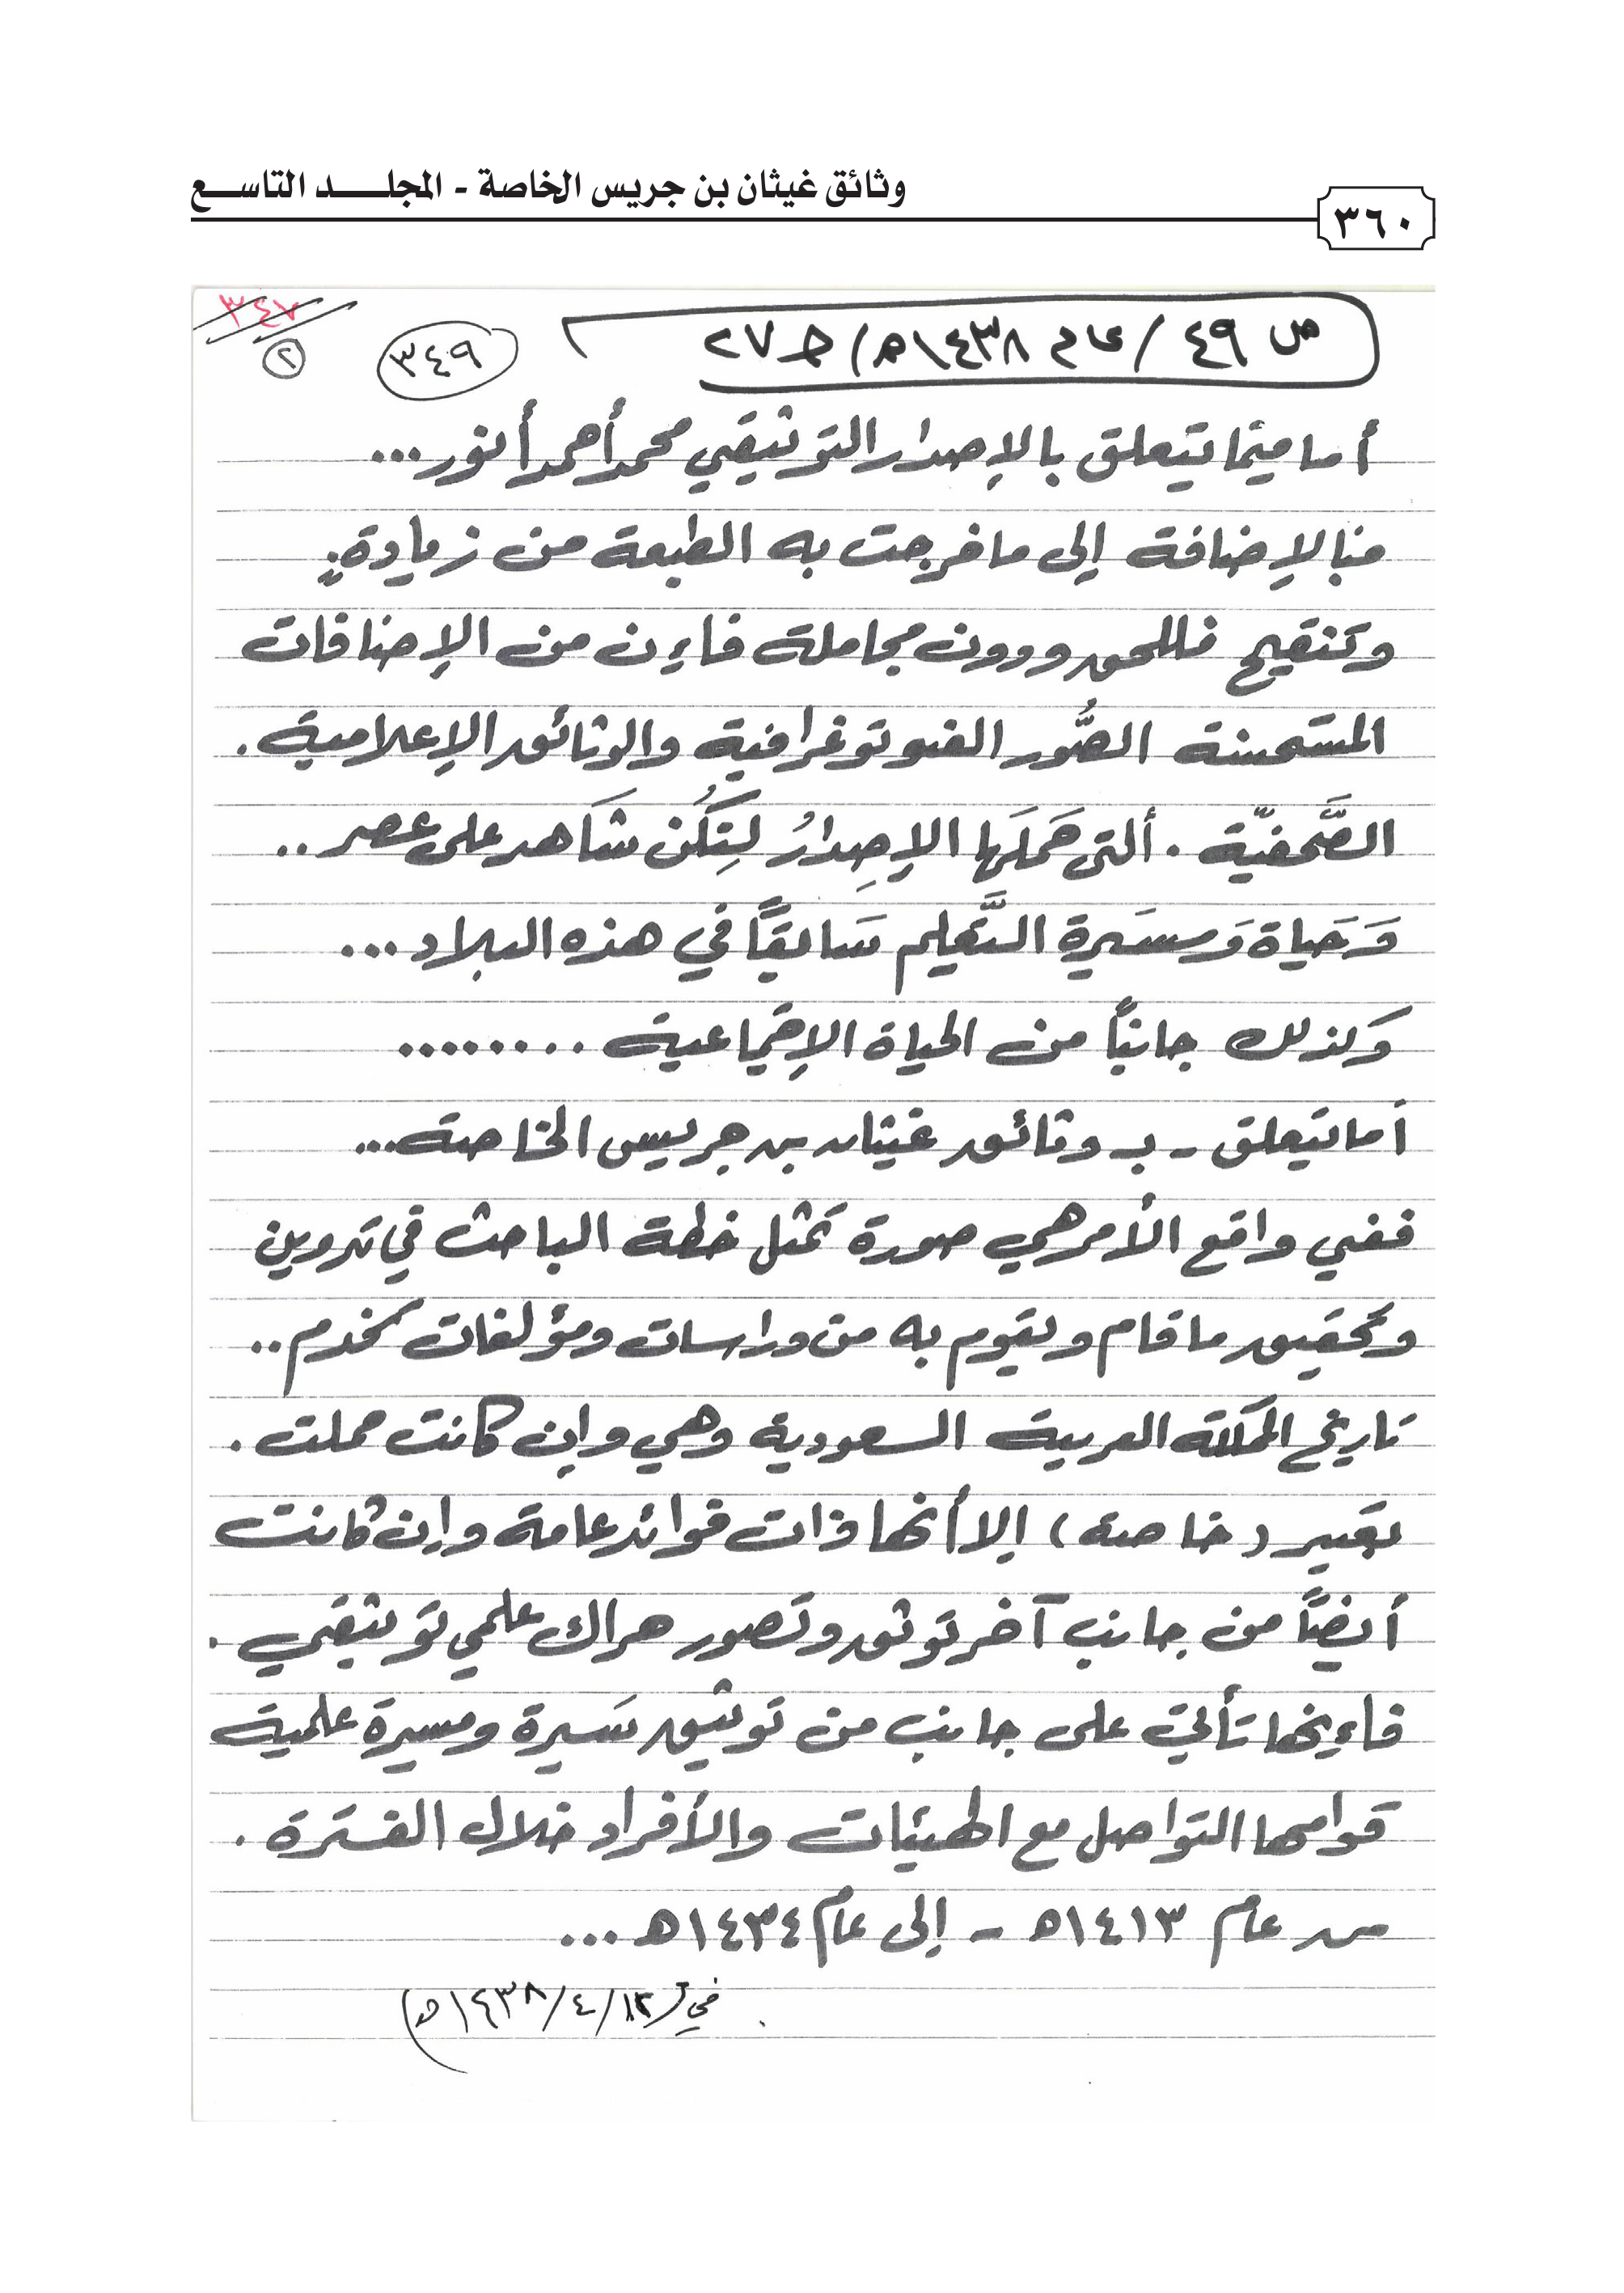 وثائق غيثان بن جريس الخاصة - المجلـــــد التاســـع
٣٦٠
٣٤٧
٢
٣٤٩
ص ٤٩ / عام ١٤٣٨هـ) ج ٢٧
أما فيما يتعلق بالإصدار التوثيقي محمد أحمد أنور ...
فبالإضافة إلى ما خرجت به الطبعة من زيادةٍ.
وتنقيح فللحق ودون مجاملة فاءِن من الإضافات
المستحسنة الصُّور الفوتوغرافية والوثائق الإعلامية .
الصَّحفيّة . ألتى حَمَلَها الإصِدارُ لِتَكُن شَاهد على عصر ..
وَحَياة وَمسَيرة التَّعليم سَابقاً في هذه البلاد ...
وَكذلك جانباً من الحياة الإجتماعية ........
أما يتعلق - بـ وثائق غيثان بن جريس الخاصة ...
ففي واقع الأمر هي صورة تمثل خطة الباحث في تدوين
وتحقيق ما قام ويقوم به من دراسات ومؤلفات تخدم ..
تاريخ المملكة العربية السعودية وهي وإن كانت حملت .
تعبير (خاصة) إلا أنها ذات فوائد عامة وإن كانت
أيضاً من جانب آخر توثق وتصور حراك علمي توثيقي .
فاءِنها تأتي على جانب من توثيق سَيرة ومسيرة علمية
قوامها التواصل مع الهيئات والأفراد خلال الفترة .
من عام ١٤١٣هـ - إلى عام ١٤٣٤هـ ...
في (١٢/٤/١٤٣٨هـ)